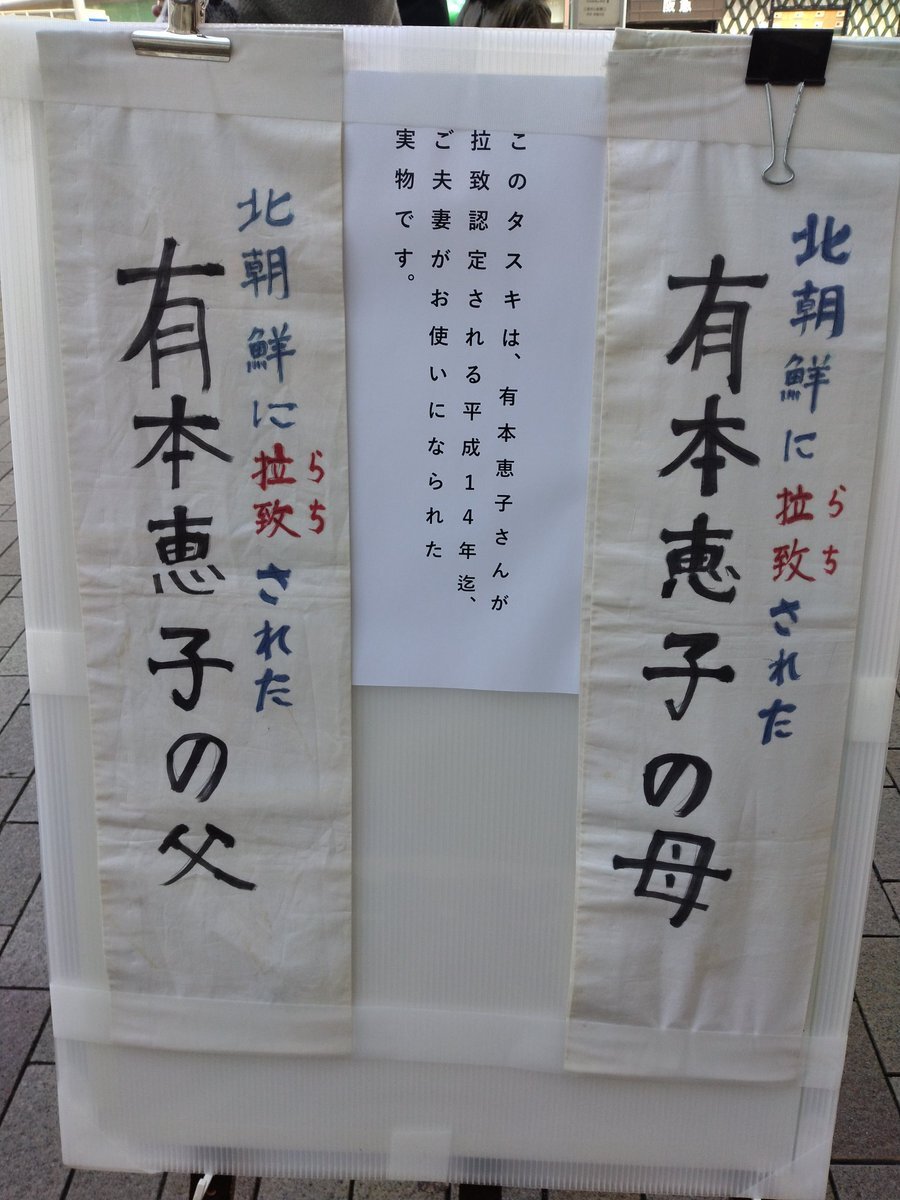 阪急
北朝鮮に拉致された
らち
有本恵子の母
このタスキは、有本恵子さんが
拉致認定される平成14年迄、
ご夫妻がお使いになられた
実物です。
北朝鮮に拉致された
らち
有本恵子の父